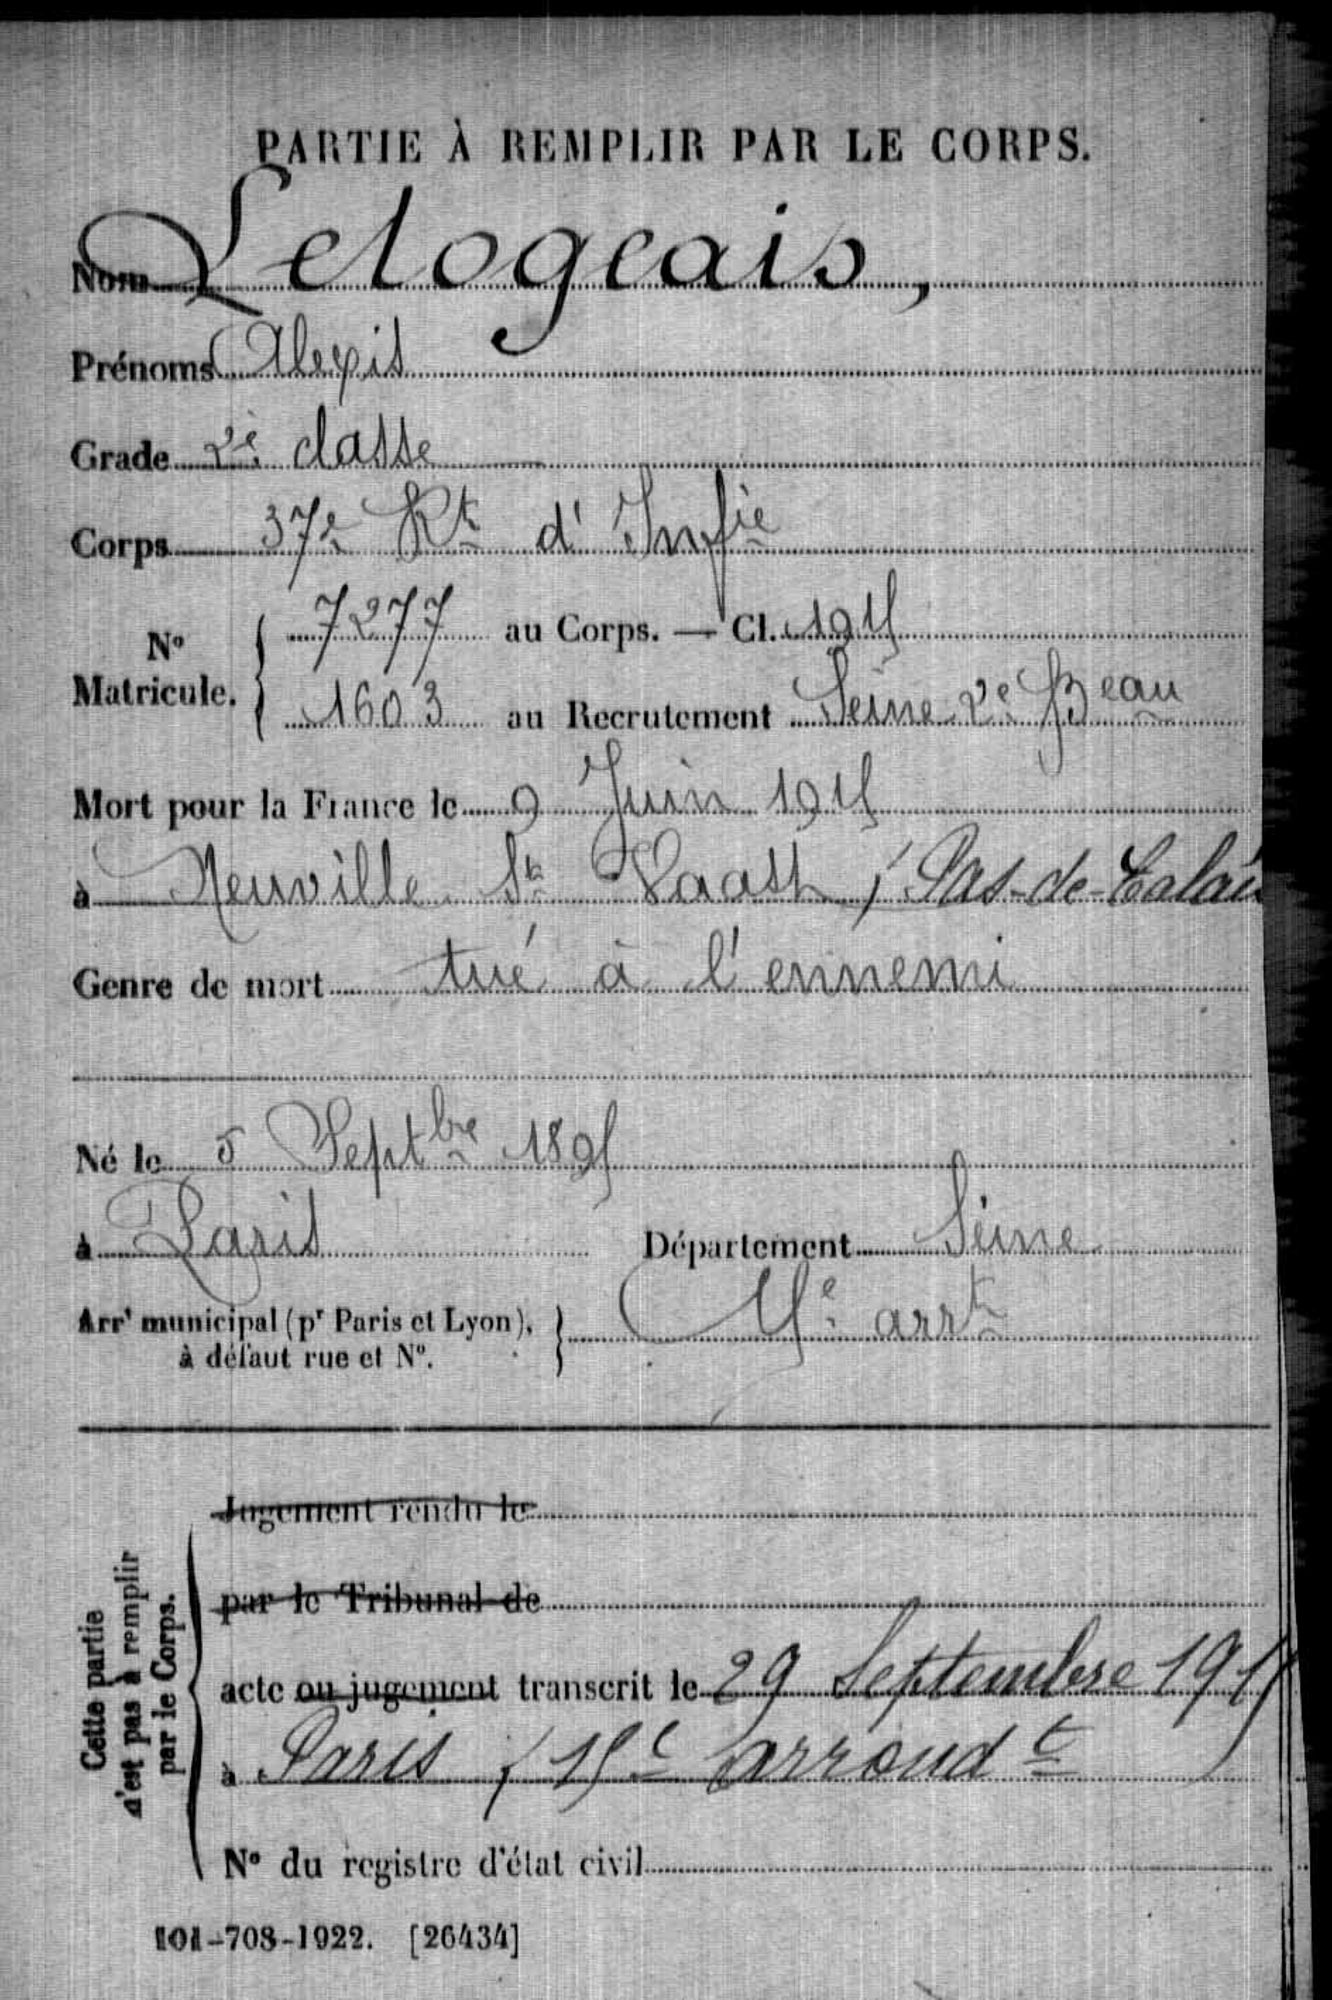 PARTIE À REMPLIR PAR LE CORPS.
Nom Lelogeais,
Prénoms Alexis
Grade 2e classe
Corps 37e Rt d'Infie
No Matricule. 7277 au Corps. — Cl. 1915
1603 au Recrutement Seine 2e Beau
Mort pour la France le 9 Juin 1915
à Neuville St Vaast, Pas-de-Calais
Genre de mort tué à l'ennemi
Né le 5 Septbre 1895
à Paris Département Seine
Arrt municipal (pr Paris et Lyon), à défaut rue et No. arrt
Cette partie n'est pas à remplir par le Corps.
Jugement rendu le
par le Tribunal de
acte ou jugement transcrit le 29 Septembre 1915
à Paris, 15e arrondt
No du registre d'état civil
101-708-1922. [26434]